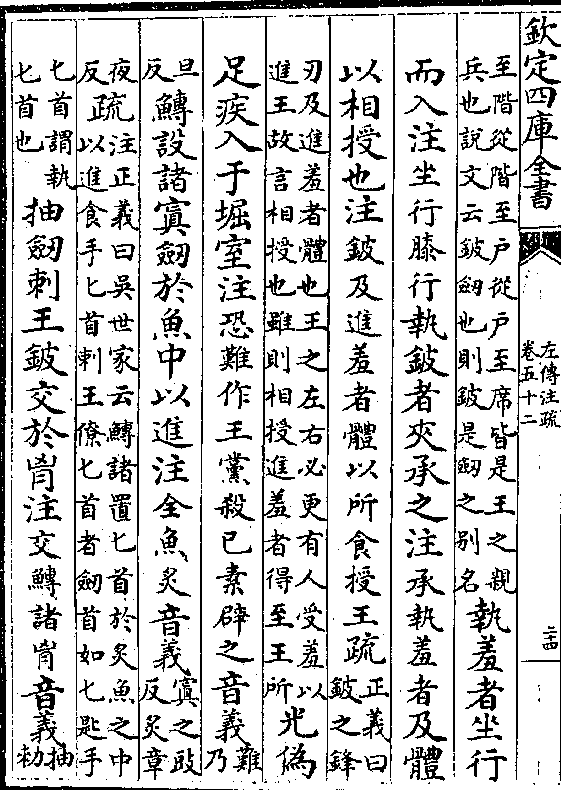 欽定四庫全書
左傳注疏
卷五十二
二十四
至階從階至户從户至席皆是王之親
兵也說文云鈹劔也則鈹是劔之别名
執羞者坐行
而入注坐行膝行執鈹者夾承之注承執羞者及體
以相授也注鈹及進羞者體以所食授王疏
正義曰
鈹之鋒
刃及進羞者體也王之左右必更有人受羞以
進王故言相授也雖則相授進羞者得至王所
光偽
足疾入于堀室注恐難作王黨殺已素辟之音義
難
乃
旦
反
鱄設諸寘劔於魚中以進注全魚炙音義
寘之䟡
反炙章
夜
反
疏
注正義曰吳世家云鱄諸置匕首於炙魚之中
以進食手匕首刺王僚匕首者劔首如匕匙手
匕首謂執
匕首也
抽劔刺王鈹交於胷注交鱄諸胷音義
抽
勑